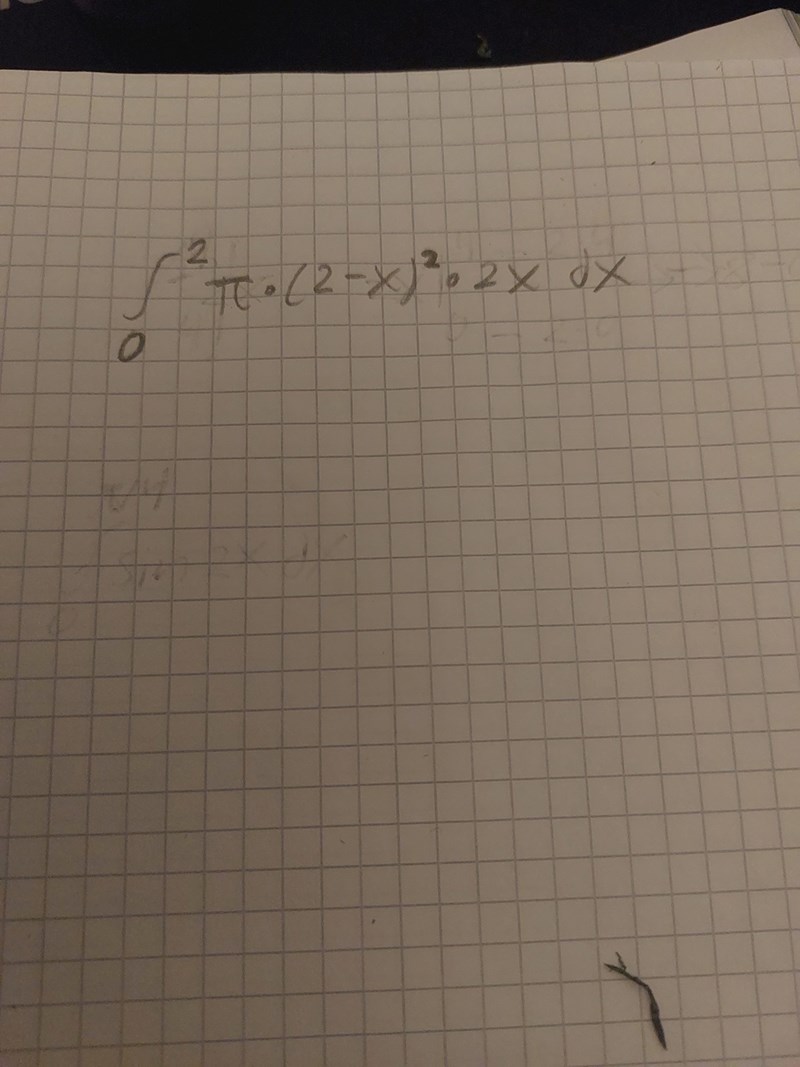 ∫₀² π·(2-x)²·2x dx